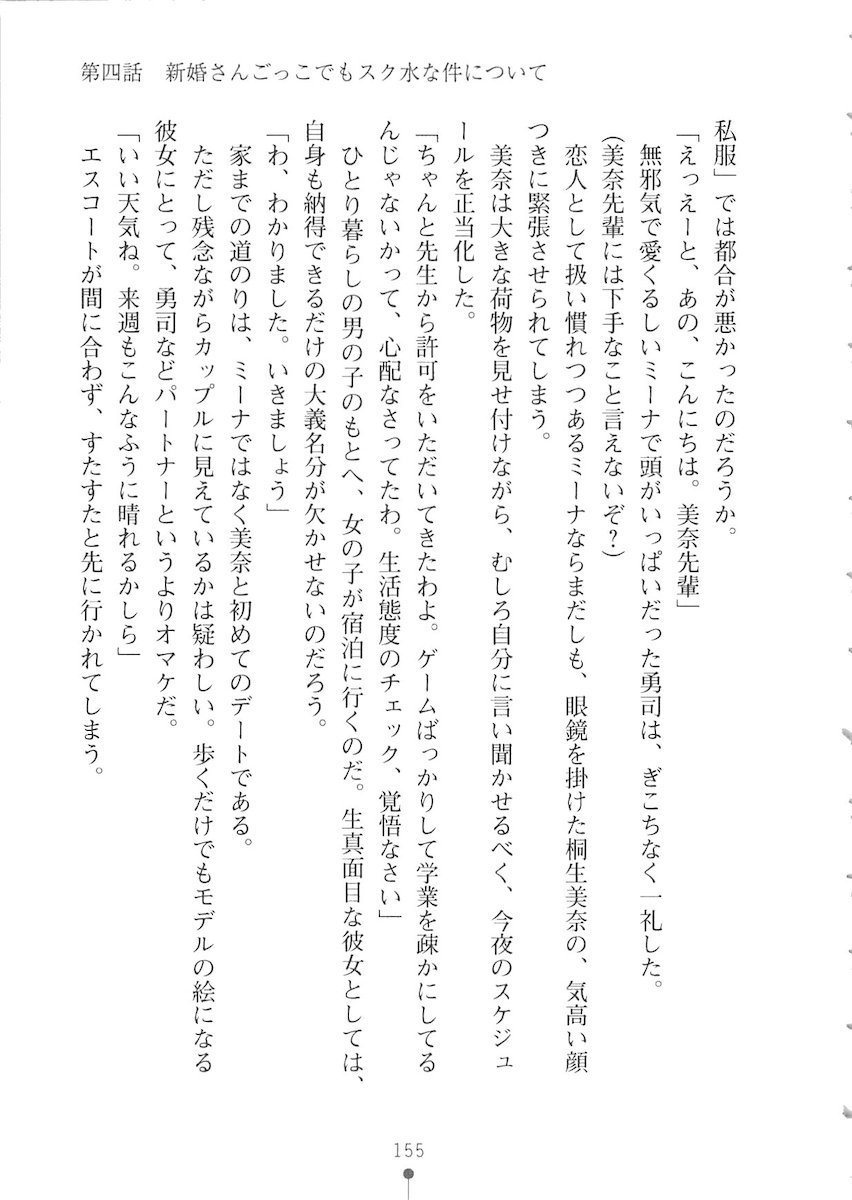 第四話　新婚さんごっこでもスク水な件について
私服」では都合が悪かったのだろうか。
「えっえーと、あの、こんにちは。美奈先輩」
無邪気で愛くるしいミーナで頭がいっぱいだった勇司は、ぎこちなく一礼した。
（美奈先輩には下手なこと言えないぞ？）
恋人として扱い慣れつつあるミーナならまだしも、眼鏡を掛けた桐生美奈の、気高い顔
つきに緊張させられてしまう。
美奈は大きな荷物を見せ付けながら、むしろ自分に言い聞かせるべく、今夜のスケジュ
ールを正当化した。
「ちゃんと先生から許可をいただいてきたわよ。ゲームばっかりして学業を疎かにしてる
んじゃないかって、心配なさってたわ。生活態度のチェック、覚悟なさい」
ひとり暮らしの男の子のもとへ、女の子が宿泊に行くのだ。生真面目な彼女としては、
自身も納得できるだけの大義名分が欠かせないのだろう。
「わ、わかりました。いきましょう」
家までの道のりは、ミーナではなく美奈と初めてのデートである。
ただし残念ながらカップルに見えているかは疑わしい。歩くだけでもモデルの絵になる
彼女にとって、勇司などパートナーというよりオマケだ。
「いい天気ね。来週もこんなふうに晴れるかしら」
エスコートが間に合わず、すたすたと先に行かれてしまう。
155